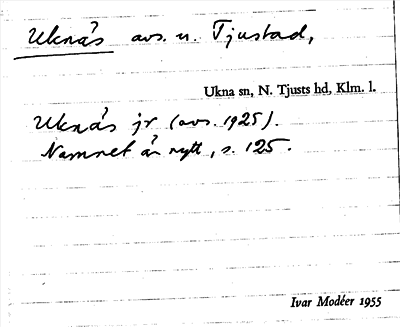 Uknås avs. u. Tjustad,
Ukna sn, N. Tjusts hd, Klm. l.
Uknås jr (avs. 1925).
Namnet är nytt, s. 125.
Ivar Modéer 1955